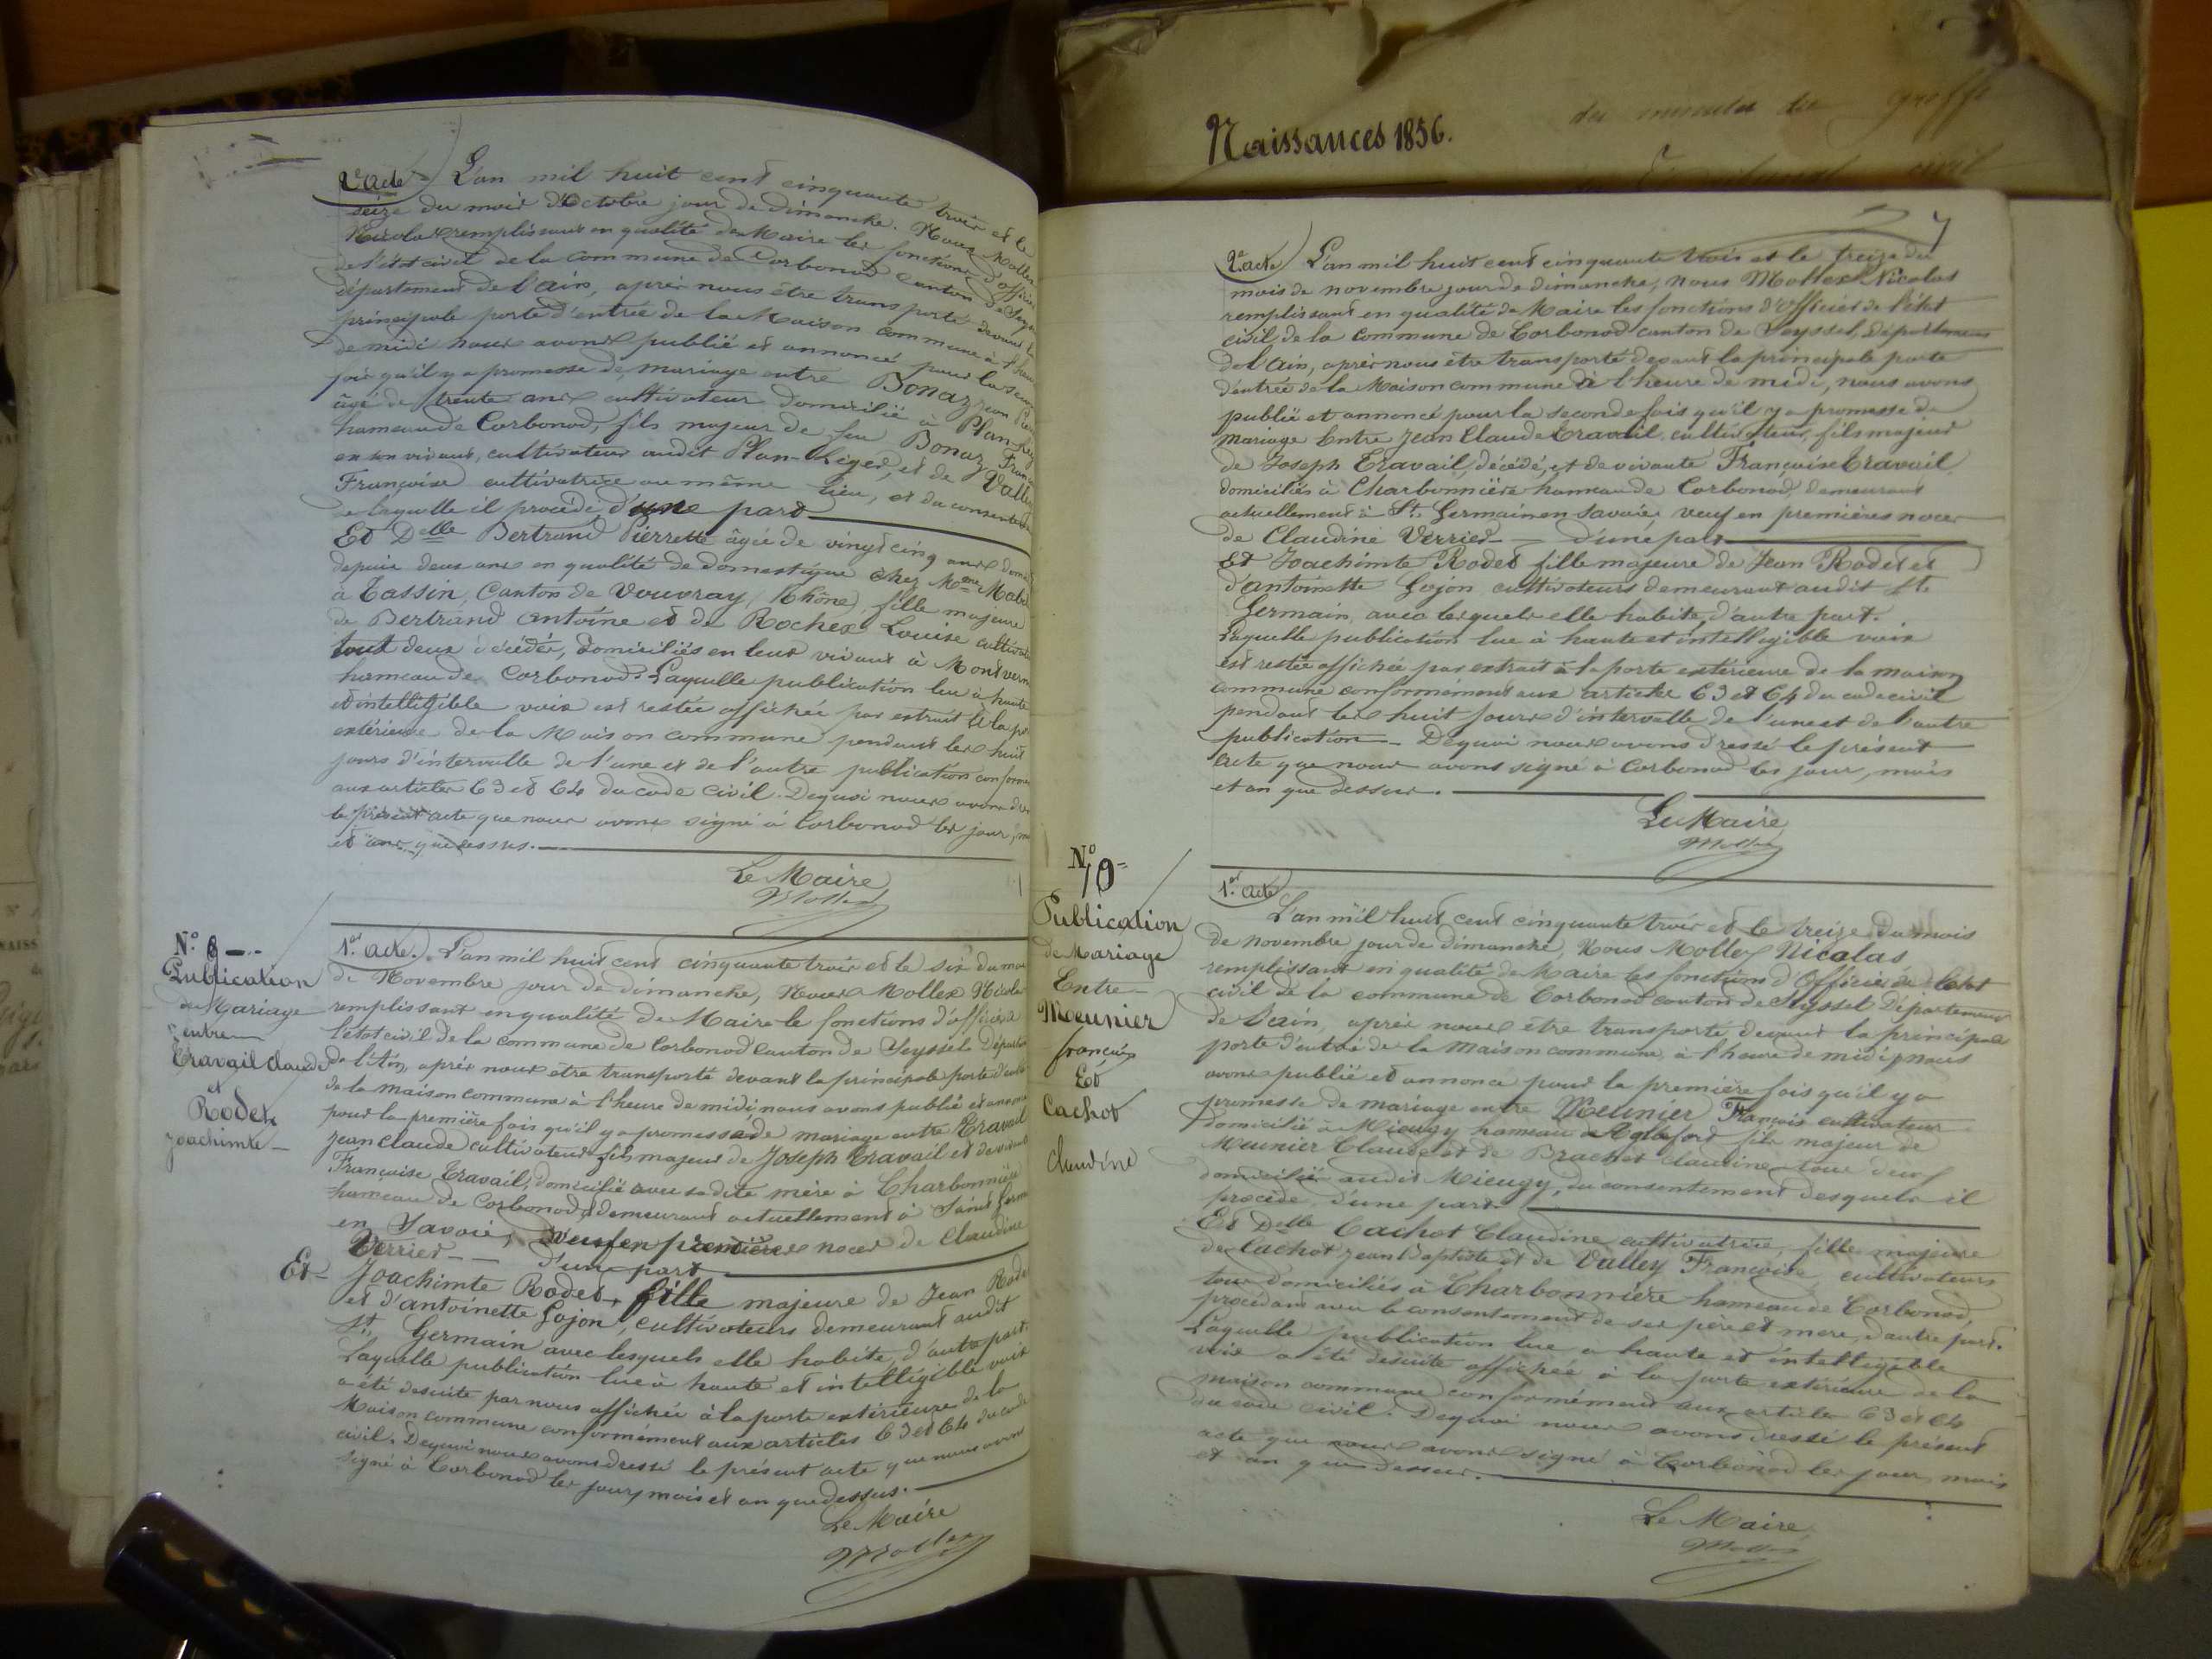 2e acte L'an mil huit cent cinquante trois et le
seize du mois d'Octobre jour de dimanche. Nous Mollex
Nicolas remplissant en qualité de Maire les fonctions d'officier
de l'état civil de la commune de Corbonod canton de Seyssel
département de l'ain, après nous être transporté devant la
principale porte d'entrée de la Maison commune à l'heure
de midi nous avons publié et annoncé pour la seconde
fois qu'il y a promesse de mariage entre Bonaz Jean
âgé de trente ans cultivateur domicilié à Plan-
hameau de Corbonod, fils majeur de feu Bonaz Franç
en son vivant, cultivateur audit Plan-Liger, et de Valley
Françoise cultivatrice au même lieu, et du consentem
de laquelle il procède d'une part
Et Delle Bertrand Pierrette âgée de vingt cinq ans dom
depuis deux ans en qualité de domestique chez Mme
à Tassin, Canton de Vouvray, (Rhône), fille majeure
de Bertrand antoine et de Rochex Louise cultivat
tout deux décédés, Domiciliés en leur vivant à Montver
hameau de Corbonod. Laquelle publication lue à haute
et intelligible voix est restée affichée par extrait à la por
extérieure de la Maison commune pendant les huit
jours d'intervalle de l'une et de l'autre publication conform
aux articles 63 et 64 du code civil. Dequoi nous avons dre
le présent acte que nous avons signé à Corbonod les jour, m
et an que dessus.
Le Maire
Mollex
No 8
Publication
de Mariage
entre
Travail Claude
et
Rodet
Joachimte
1er acte. L'an mil huit cent cinquante trois et le six du moi
de Novembre jour de dimanche, Nous Mollex Nicolas
remplissant en qualité de Maire le fonctions d'officier de
l'état civil de la commune de Corbonod canton de Seyssel Départem
de l'Ain, après nous être transporté devant la principale porte d'entr
de la Maison commune à l'heure de midi nous avons publié et annonc
pour la première fois qu'il y a promesse de mariage entre Travail
Jean Claude cultivateur fils majeur de Joseph Travail et de vivant
Françoise Travail, domicilié avec sa dite mère à Charbonnière
hameau de Corbonod demeurant actuellement à Saint Germ
en Savoie, veuf en premières noces de Claudine
Verrier d'une part
Et Joachimte Rodet, fille majeure de Jean Rodet
et d'antoinette Gojon, cultivateurs demeurant audit
St Germain avec lesquels elle habite, d'autre part.
Laquelle publication lue à haute et intelligible voix
a été desuite par nous affichée à la porte extérieure de la
Maison commune conformément aux articles 63 et 64 du code
civil. Dequoi nous avons dressé le présent acte que nous avons
signé à Corbonod les jour, mois et an que dessus.
Le Maire
Mollex
Naissances 1856.
des minutes du greffe
civil
7
2e acte L'an mil huit cent cinquante trois et le treize du
mois de novembre jour de dimanche, nous Mollex Nicolas
remplissant en qualité de Maire les fonctions d'Officier de l'état
civil de la commune de Corbonod canton de Seyssel, département
de l'Ain, après nous être transporté devant la principale porte
d'entrée de la Maison commune à l'heure de midi, nous avons
publié et annoncé pour la seconde fois qu'il y a promesse de
Mariage Entre Jean Claude Travail, cultivateur, fils majeur
de Joseph Travail, décédé, et de vivante Françoise Travail
domiciliés à Charbonnière hameau de Corbonod, demeurant
actuellement à St Germain en Savoie, veuf en premières noces
de Claudine Verrier d'une part
Et Joachimte Rodet fille majeure de Jean Rodet et
d'antoinette Gojon cultivateurs demeurant audit St
Germain, avec lesquels elle habite, d'autre part.
Laquelle publication lue à haute et intelligible voix
est restée affichée par extrait à la porte extérieure de la maison
commune conformément aux articles 63 et 64 du code civil
pendant les huit jours d'intervalle de l'une et de l'autre
publication. Dequoi nous avons dressé le présent
acte que nous avons signé à Corbonod les jour, mois
et an que dessus.
Le Maire
Mollex
No
10
Publication
de Mariage
Entre
Meunier
françois
Et
Cachot
Claudine
1er acte
L'an mil huit cent cinquante trois et le treize du mois
de novembre jour de dimanche, Nous Mollex Nicolas
remplissant en qualité de Maire les fonctions d'Officier de l'état
civil de la commune de Corbonod canton de Seyssel Département
de l'ain, après nous être transporté devant la principale
porte d'entrée de la Maison commune à l'heure de midi, nous
avons publié et annoncé pour la première fois qu'il y a
promesse de mariage entre Meunier François cultivateur
domicilié à Mieugy hameau d'Anglefort fils majeur de
Meunier Claude et de Brachet Claudine tous deux
domiciliés audit Mieugy, du consentement desquels il
procède d'une part
Et Delle Cachot Claudine cultivatrice, fille majeure
de Cachot Jean Baptiste et de Valley Françoise, cultivateurs
tous domiciliés à Charbonnière hameau de Corbonod,
procédant avec le consentement de ses père et mère, d'autre part.
Laquelle publication lue à haute et intelligible
voix a été desuite affichée à la porte extérieure de la
maison commune conformément aux articles 63 et 64
du code civil. Dequoi nous avons dressé le présent
acte que nous avons signé à Corbonod les jour, mois
et an que dessus.
Le Maire
Mollex